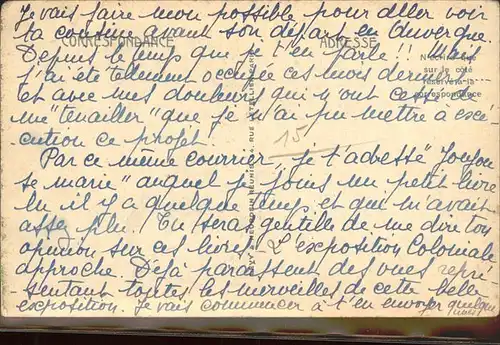 Je vais faire mon possible pour aller voir
ta cousine avant son départ en Auvergne
CORRESPONDANCE
ADRESSE
Depuis le temps que je t'en parle !! Mais
j'ai été tellement occupée ces mois derniers...
et avec mes douleurs qui n'ont cessé de
me "tenailler" que je n'ai pu mettre à exé-
cution ce projet.
15
Par ce même courrier je t'adresse "Joujou
se marie" auquel je joins un petit livre
lu il y a quelque temps et qui m'avait
assez plu. Tu seras gentille de me dire ton
opinion sur ces livres. L'exposition Coloniale
approche. Déjà paraissent des vues repré-
sentant toutes les merveilles de cette belle
exposition. Je vais commencer à t'en envoyer quelques
unes
N'écrire que
sur le côté
réservé à la
correspondance